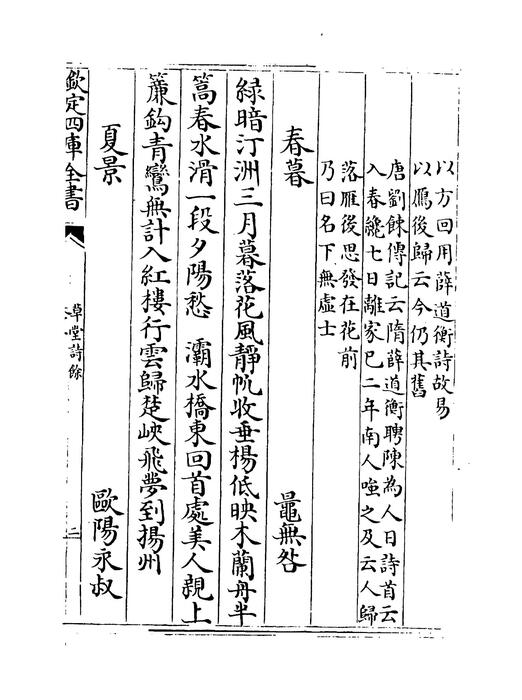 以方回用薛道衡詩故易
以鴈後歸云今仍其舊
唐劉餗傳記云隋薛道衡聘陳為人日詩首云
入春纔七日離家已二年南人嗤之及云人歸
落雁後思發在花前
乃曰名下無虛士
春暮 鼂無咎
緑暗汀洲三月暮落花風靜帆收垂楊低映木蘭舟半
篙春水滑一段夕陽愁 灞水橋東回首處美人親上
簾鈎青鸞無計入紅樓行雲歸楚峽飛夢到揚州
夏景 歐陽永叔
欽定四庫全書 草堂詩餘 二